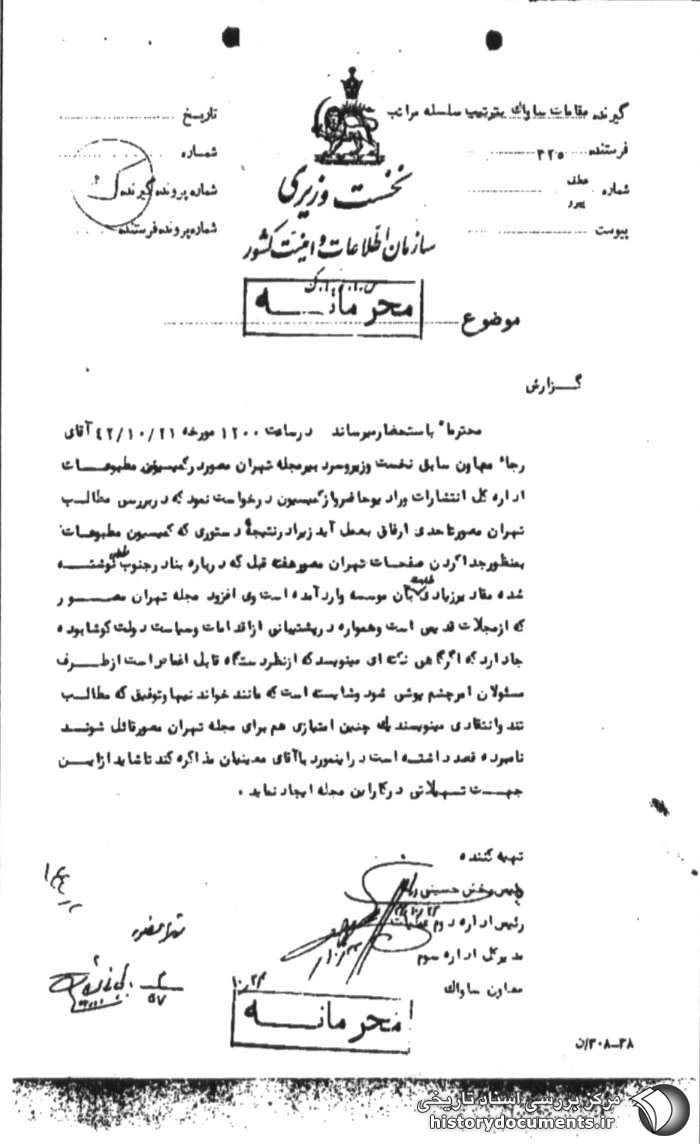 گیرنده مقامات ساواک بترتیب سلسله مراتب
فرستنده ۳۲۵
شماره عطف
پیرو
پیوست
تاریخ
شماره
شماره پرونده گیرنده
شماره پرونده فرستنده
نخست وزیری
سازمان اطلاعات و امنیت کشور
س.ا.و.ا.ک
محرمانه
موضوع
گزارش
محترماً باستحضار میرساند در ساعت ۱۲۰۰ مورخه ۴۲/۱۰/۲۱ آقای
رجاء معاون سابق نخست وزیر و سردبیر مجله تهران مصور در کمیسیون مطبوعات
اداره کل انتشارات و رادیو حاضر و از کمیسیون درخواست نمود که در بررسی مطالب
تهران مصور تا حدی ارفاق بعمل آید زیرا در نتیجهٔ دستوری که کمیسیون مطبوعات
بمنظور جدا کردن صفحات تهران مصور هفته قبل که درباره بنادر جنوب نوشته
شده مقادیر زیادی بآن موسسه وارد آمده است وی افزود مجله تهران مصور
که از مجلات قدیمی است و همواره در پشتیبانی از اقدامات و سیاست دولت کوشا بوده
جا دارد که اگر گاهی نکته ای مینویسد که از نظر دستگاه قابل اغماض است از طرف
مسئولان امر چشم پوشی شود و شایسته است که مانند خواندنیها و توفیق که مطالب
تند و انتقادی مینویسند یک چنین امتیازی هم برای مجله تهران مصور قائل شوند
نامبرده قصد داشته است در اینمورد با آقای معینیان مذاکره کند تا شاید از این
جهت تسهیلاتی در کار این مجله ایجاد نماید .
تهیه کننده
رئیس بخش حسینی
رئیس اداره دوم عملیات
مدیر کل اداره سوم
معاون ساواک
۱۰/۲۴
محرمانه
۳۰۸-۳۸/ن
مرکز بررسی اسناد تاریخی
historydocuments.ir